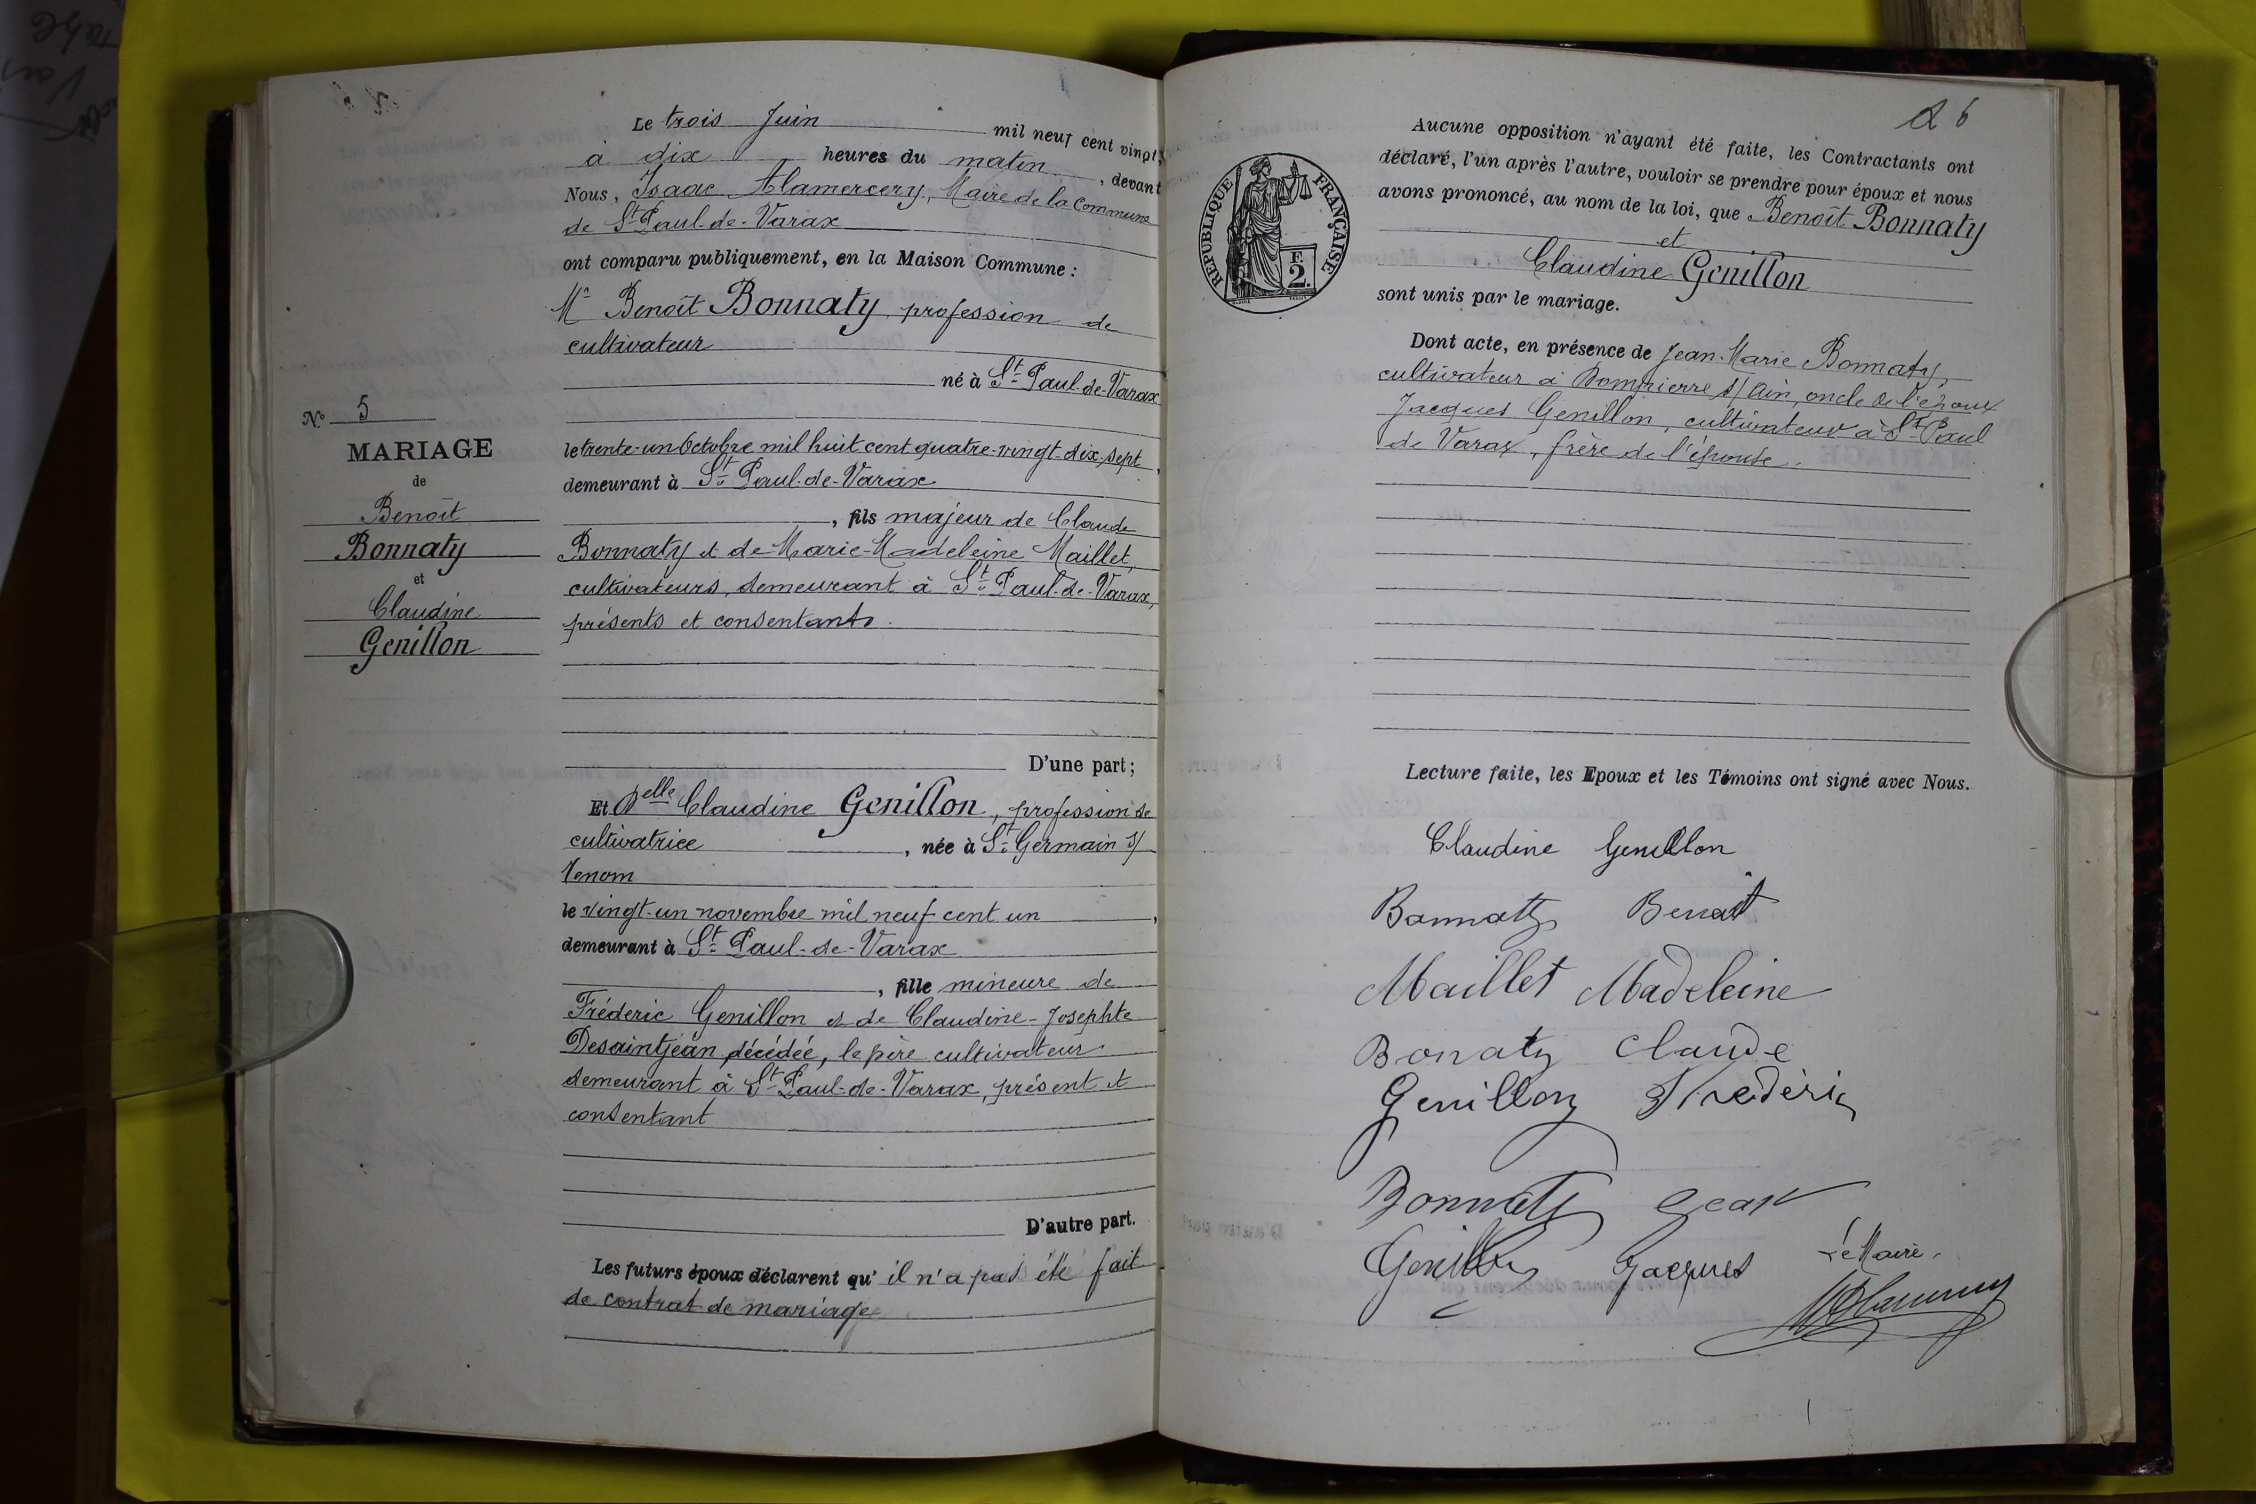 Le trois Juin mil neuf cent vingt,
à dix heures du matin, devant
Nous, Isaac Alamercery, Maire de la Commune
de St Paul-de-Varax
ont comparu publiquement, en la Maison Commune :
Mr Benoît Bonnaty profession de
cultivateur
né à St Paul-de-Varax
N° 5
MARIAGE
de
Benoît
Bonnaty
et
Claudine
Genillon
le trente-un Octobre mil huit cent quatre-vingt-dix-sept,
demeurant à St Paul-de-Varax
, fils majeur de Claude
Bonnaty et de Marie-Madeleine Maillet,
cultivateurs, demeurant à St Paul-de-Varax,
présents et consentants.
D'une part ;
Et Delle Claudine Genillon, profession de
cultivatrice, née à St Germain s/
Renom
le vingt-un novembre mil neuf cent un,
demeurant à St Paul-de-Varax
, fille mineure de
Fréderic Genillon et de Claudine-Josephte
Desaintjean décédée, le père cultivateur
demeurant à St Paul-de-Varax, présent et
consentant
D'autre part.
Les futurs époux déclarent qu'il n'a pas été fait
de contrat de mariage
26
RÉPUBLIQUE FRANÇAISE
F
2.
Aucune opposition n'ayant été faite, les Contractants ont
déclaré, l'un après l'autre, vouloir se prendre pour époux et nous
avons prononcé, au nom de la loi, que Benoît Bonnaty
et
Claudine Genillon
sont unis par le mariage.
Dont acte, en présence de Jean-Marie Bonnaty,
cultivateur à Dompierre s/ Ain, oncle de l'époux
Jacques Genillon, cultivateur à St Paul
de Varax, frère de l'épouse.
Lecture faite, les Epoux et les Témoins ont signé avec Nous.
Claudine Genillon
Bonnaty Benoît
Maillet Madeleine
Bonaty Claude
Genillon Frédéric
Bonnaty Jean
Genillon Jacques
Le Maire,